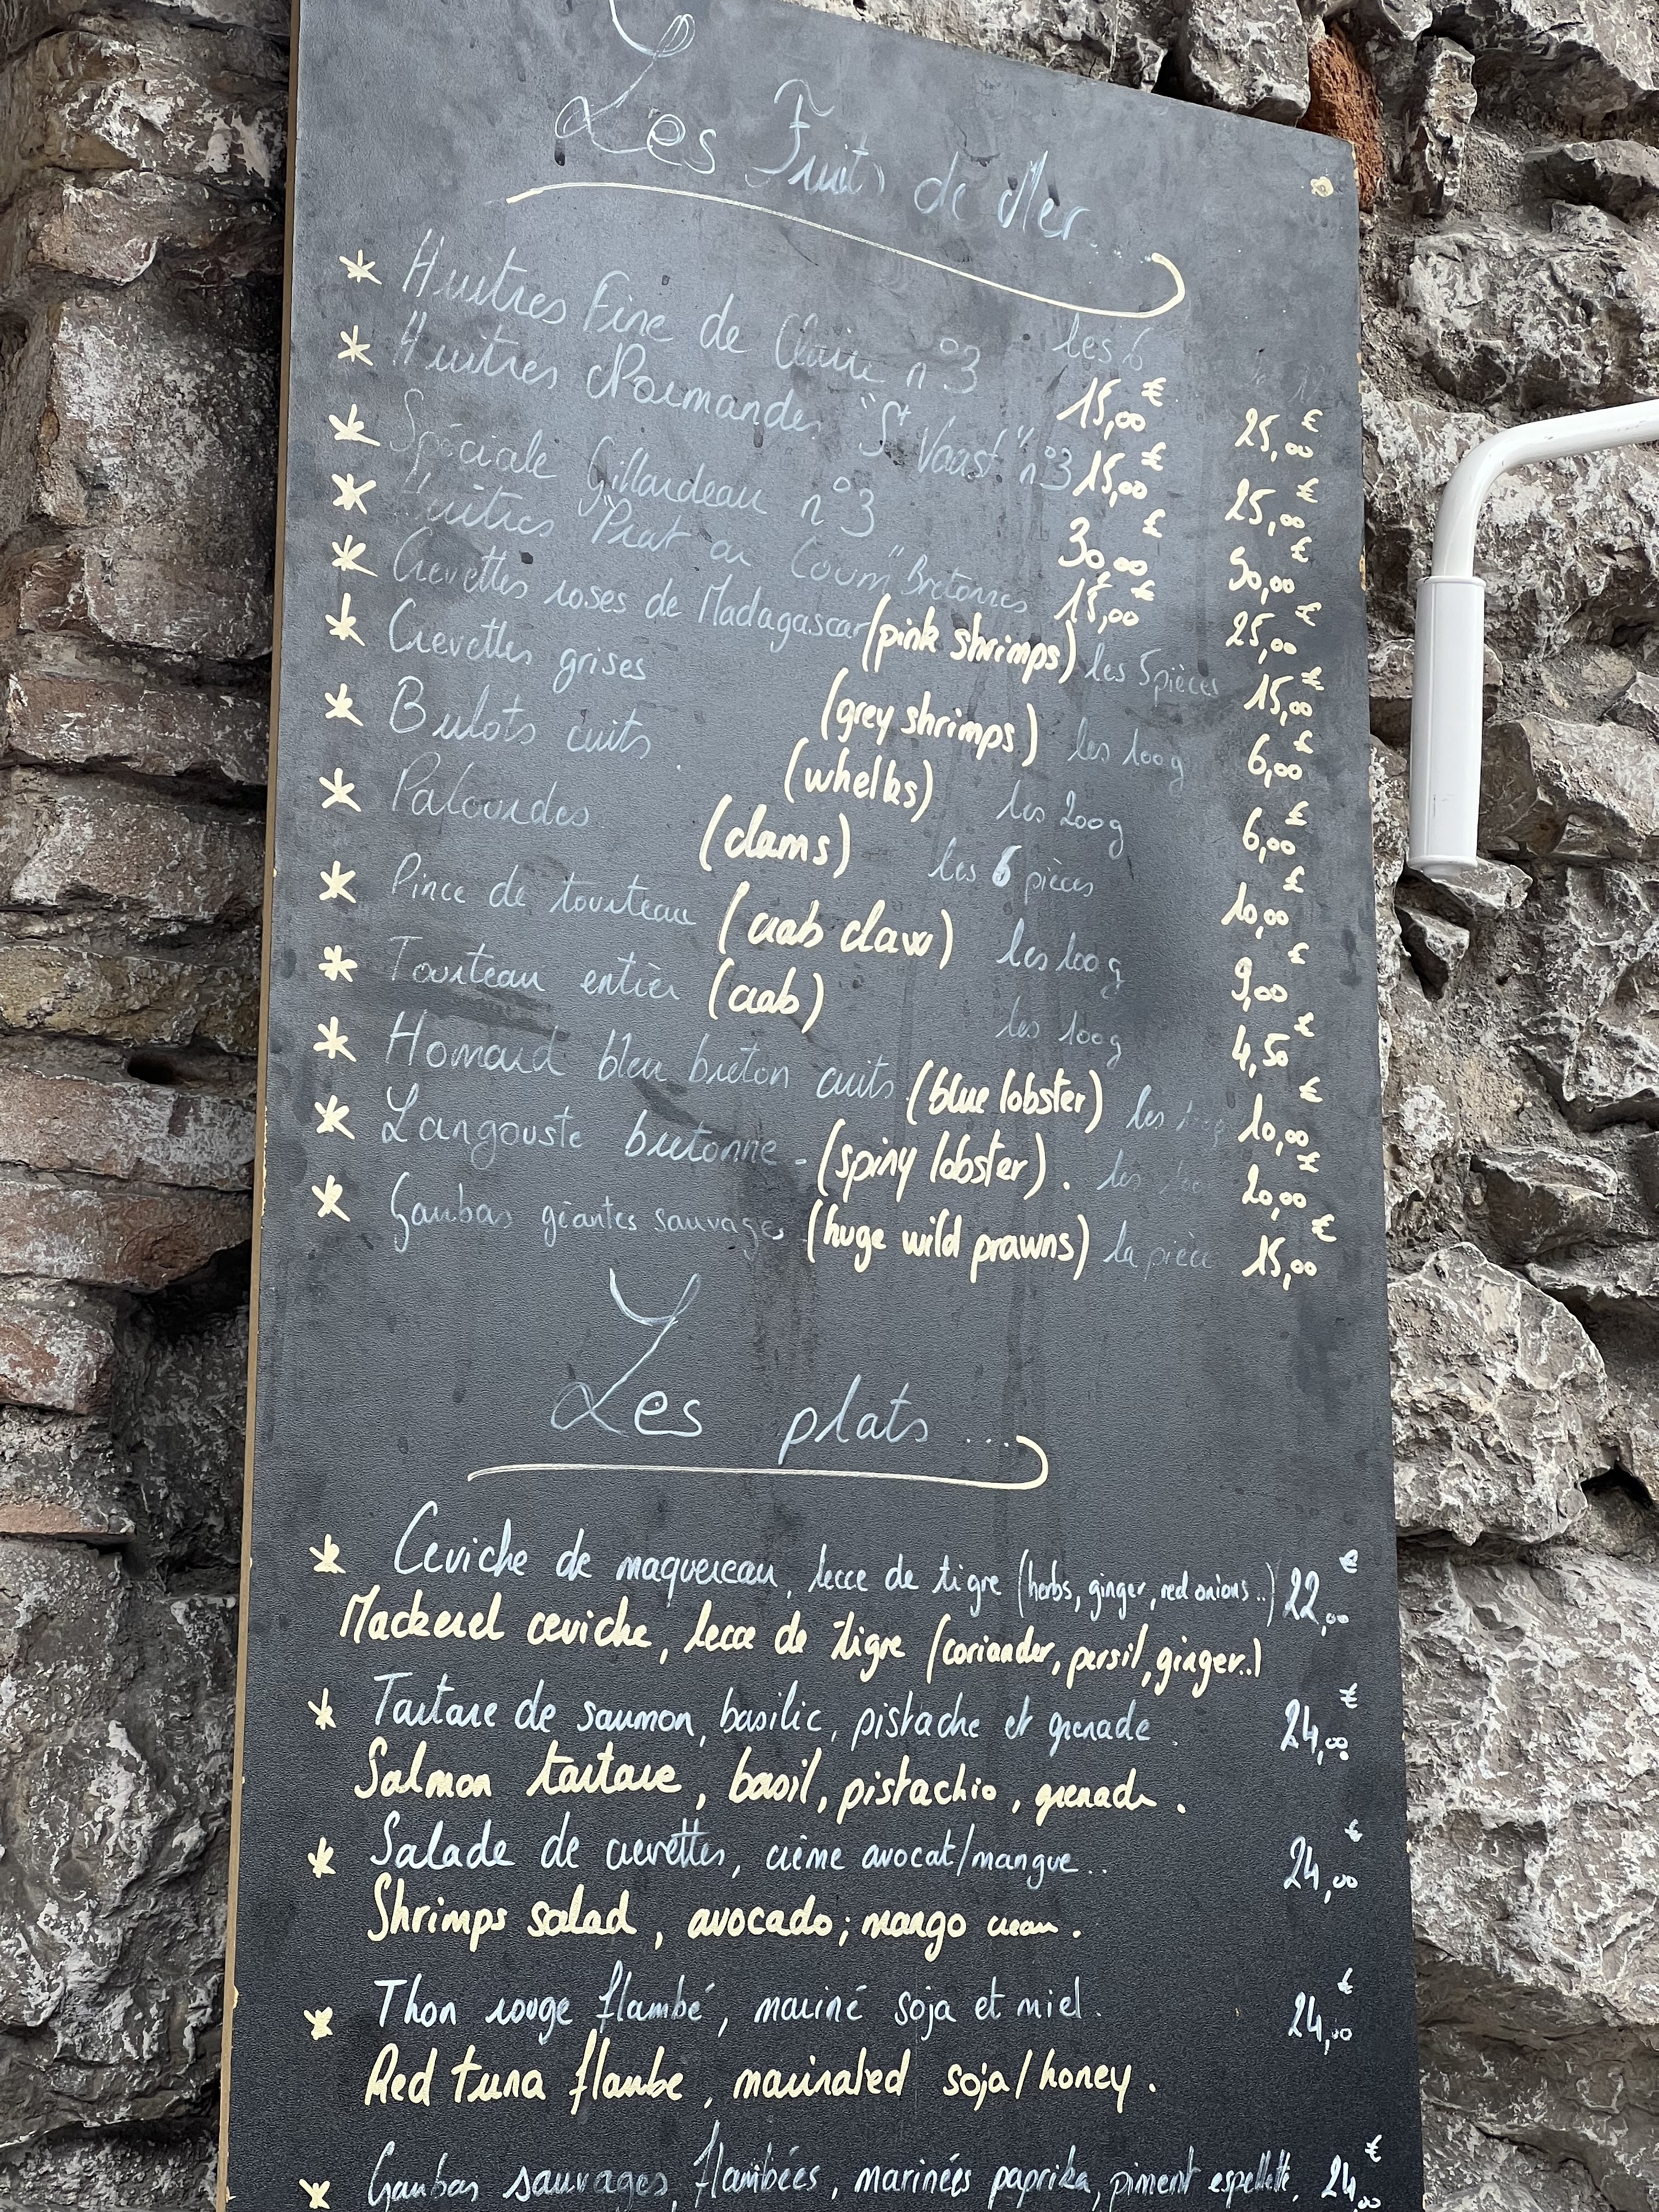 Les Fruits de Mer...
* Huitres Fine de Claire n°3 les 6 15,00€ 25,00€
* Huitres Normandes "St Vaast" n°3 15,00€ 25,00€
* Spéciale Gillardeau n°3 30,00€ 50,00€
* Huitres "Prat ar Coum" Bretonnes 15,00€ 25,00€
* Crevettes roses de Madagascar (pink shrimps) les 5 pièces 15,00€
* Crevettes grises (grey shrimps) les 100g 6,00€
* Bulots cuits. (whelks) les 200g 6,00€
* Palourdes (clams) les 6 pièces 10,00€
* Pince de tourteau (crab claw) les 100g 9,00€
* Tourteau entier (crab) les 100g 4,50€
* Homard bleu breton cuits (blue lobster) les 100g 10,00€
* Langouste bretonne - (spiny lobster). les 20,00€
* Gambas géantes sauvages (huge wild prawns) la pièce 15,00€
Les plats ...
* Ceviche de maquereau, lecce de tigre (herbs, ginger, red onions..) 22,00€
Mackerel ceviche, lecce de tigre (coriander, persil, ginger..)
* Tartare de saumon, basilic, pistache et grenade. 24,00€
Salmon tartare, basil, pistachio, grenade.
* Salade de crevettes, crème avocat/mangue.. 24,00€
Shrimps salad, avocado; mango cream.
* Thon rouge flambé, mariné soja et miel. 24,00€
Red tuna flambe, marinated soja/honey.
* Gambas sauvages, flambées, marinées paprika, piment espelette, 24,00€